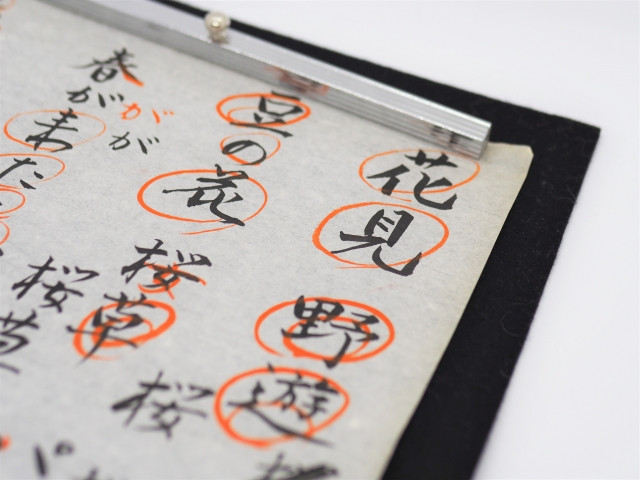 花見 野遊
豆の花 桜草
桜
春が
がが
桜草